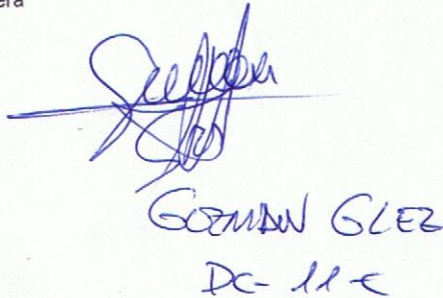 era
GUZMAN GLEZ
DC-11-C